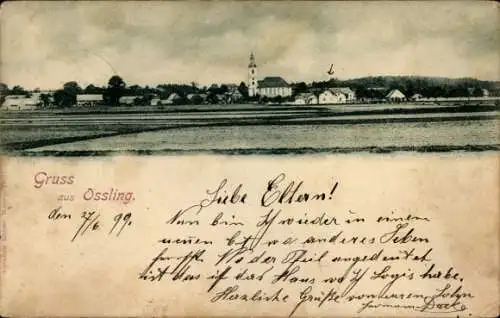 Gruss
aus Ossling.
den 27/6 99.
Liebe Eltern!
Nun bin Ich wieder in einem
neuen etwas anderes Leben
der Pfeil angedeutet
ist das Haus wo ich Logis habe.
Herzliche Grüße von euren Sohn
Hermann